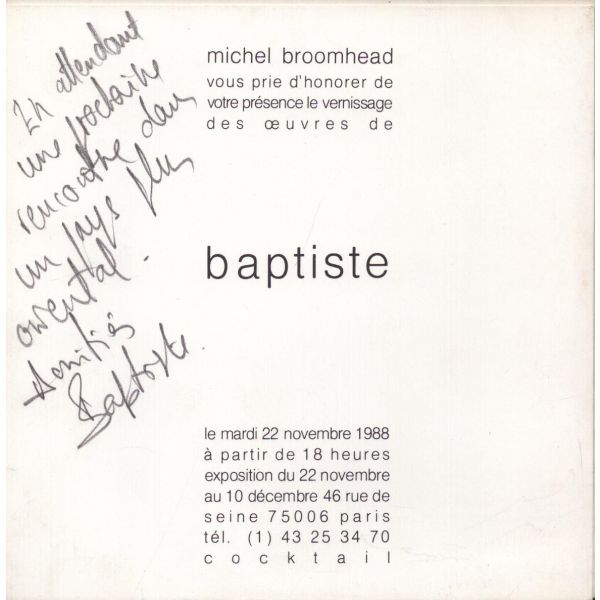 En attendant
une prochaine
rencontre dans
un pays plus
oriental.
Amitiés
Baptiste.
michel broomhead
vous prie d'honorer de
votre présence le vernissage
des œuvres de
baptiste
le mardi 22 novembre 1988
à partir de 18 heures
exposition du 22 novembre
au 10 décembre 46 rue de
seine 75006 paris
tél. (1) 43 25 34 70
cocktail